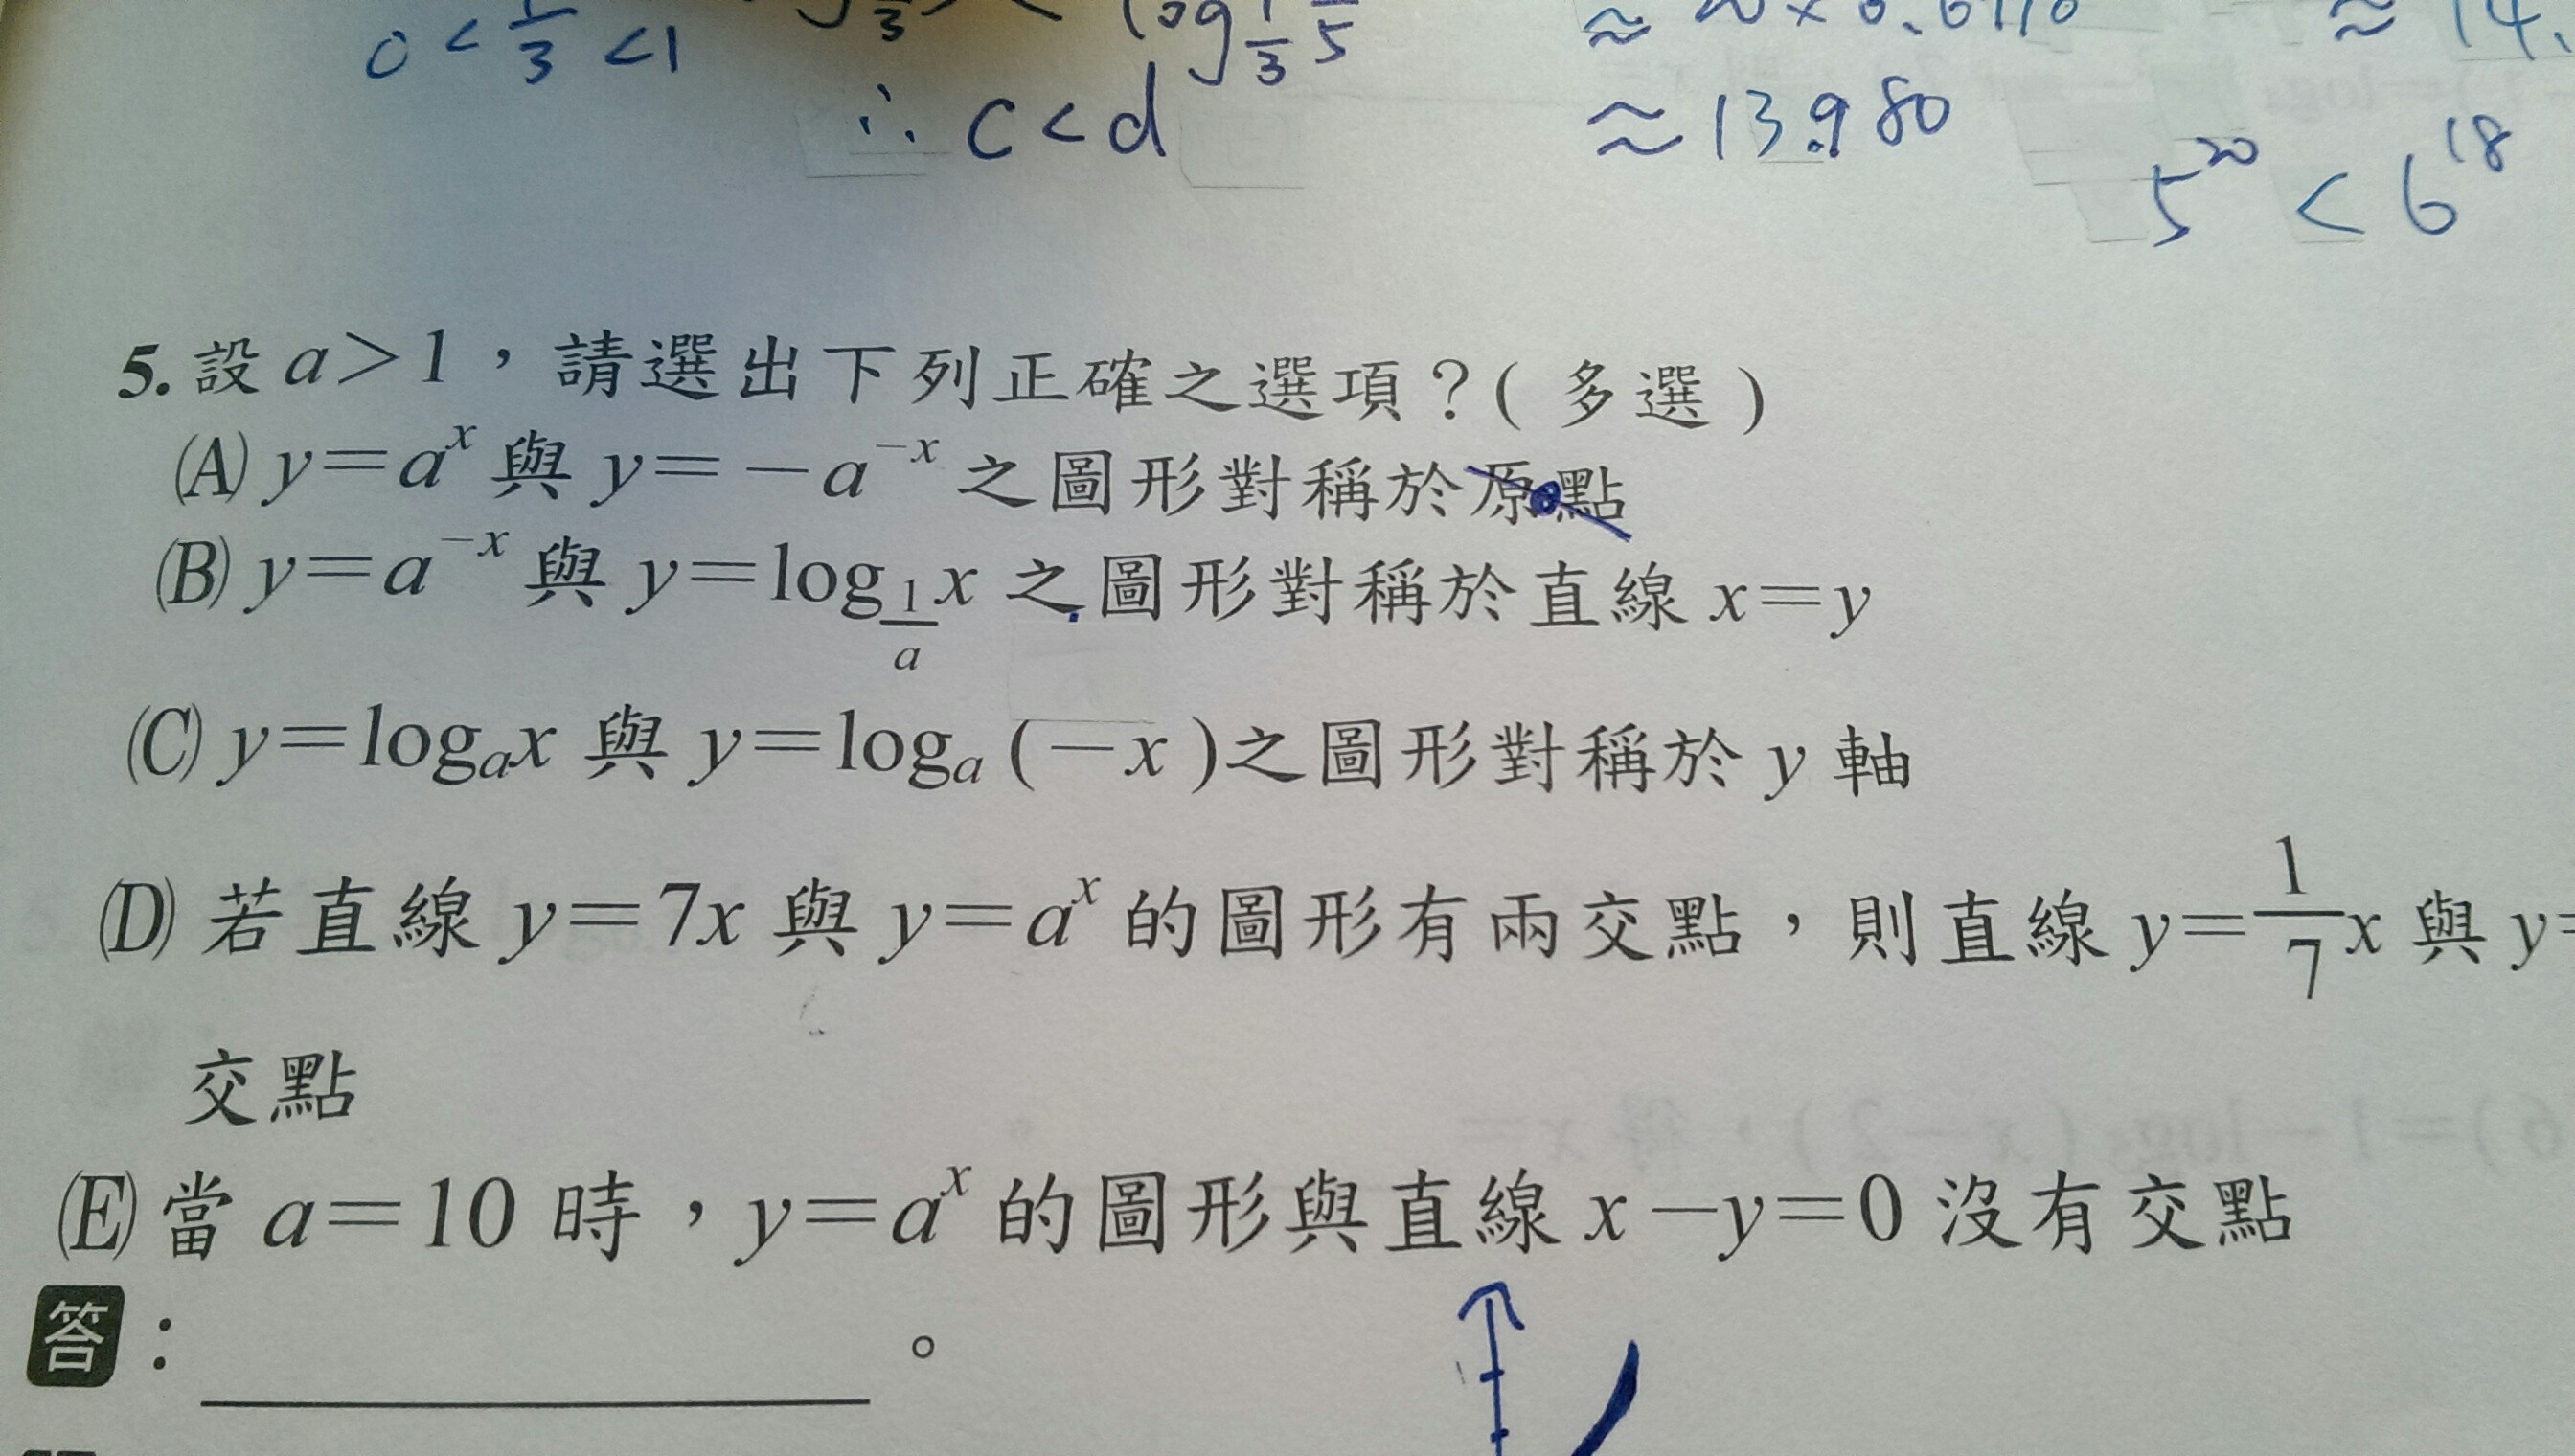 0 < 1/3 < 1
log 1/3 5
∴ c < d
≈ 13.980
5^20 < 6^18
5. 設 a>1，請選出下列正確之選項？( 多選 )
(A) y=a^x 與 y=-a^{-x} 之圖形對稱於原點
(B) y=a^{-x} 與 y=log_{1/a} x 之圖形對稱於直線 x=y
(C) y=log_a x 與 y=log_a (-x)之圖形對稱於 y 軸
(D) 若直線 y=7x 與 y=a^x 的圖形有兩交點，則直線 y=1/7 x 與 y=
交點
(E) 當 a=10 時，y=a^x 的圖形與直線 x-y=0 沒有交點
答：　　　。